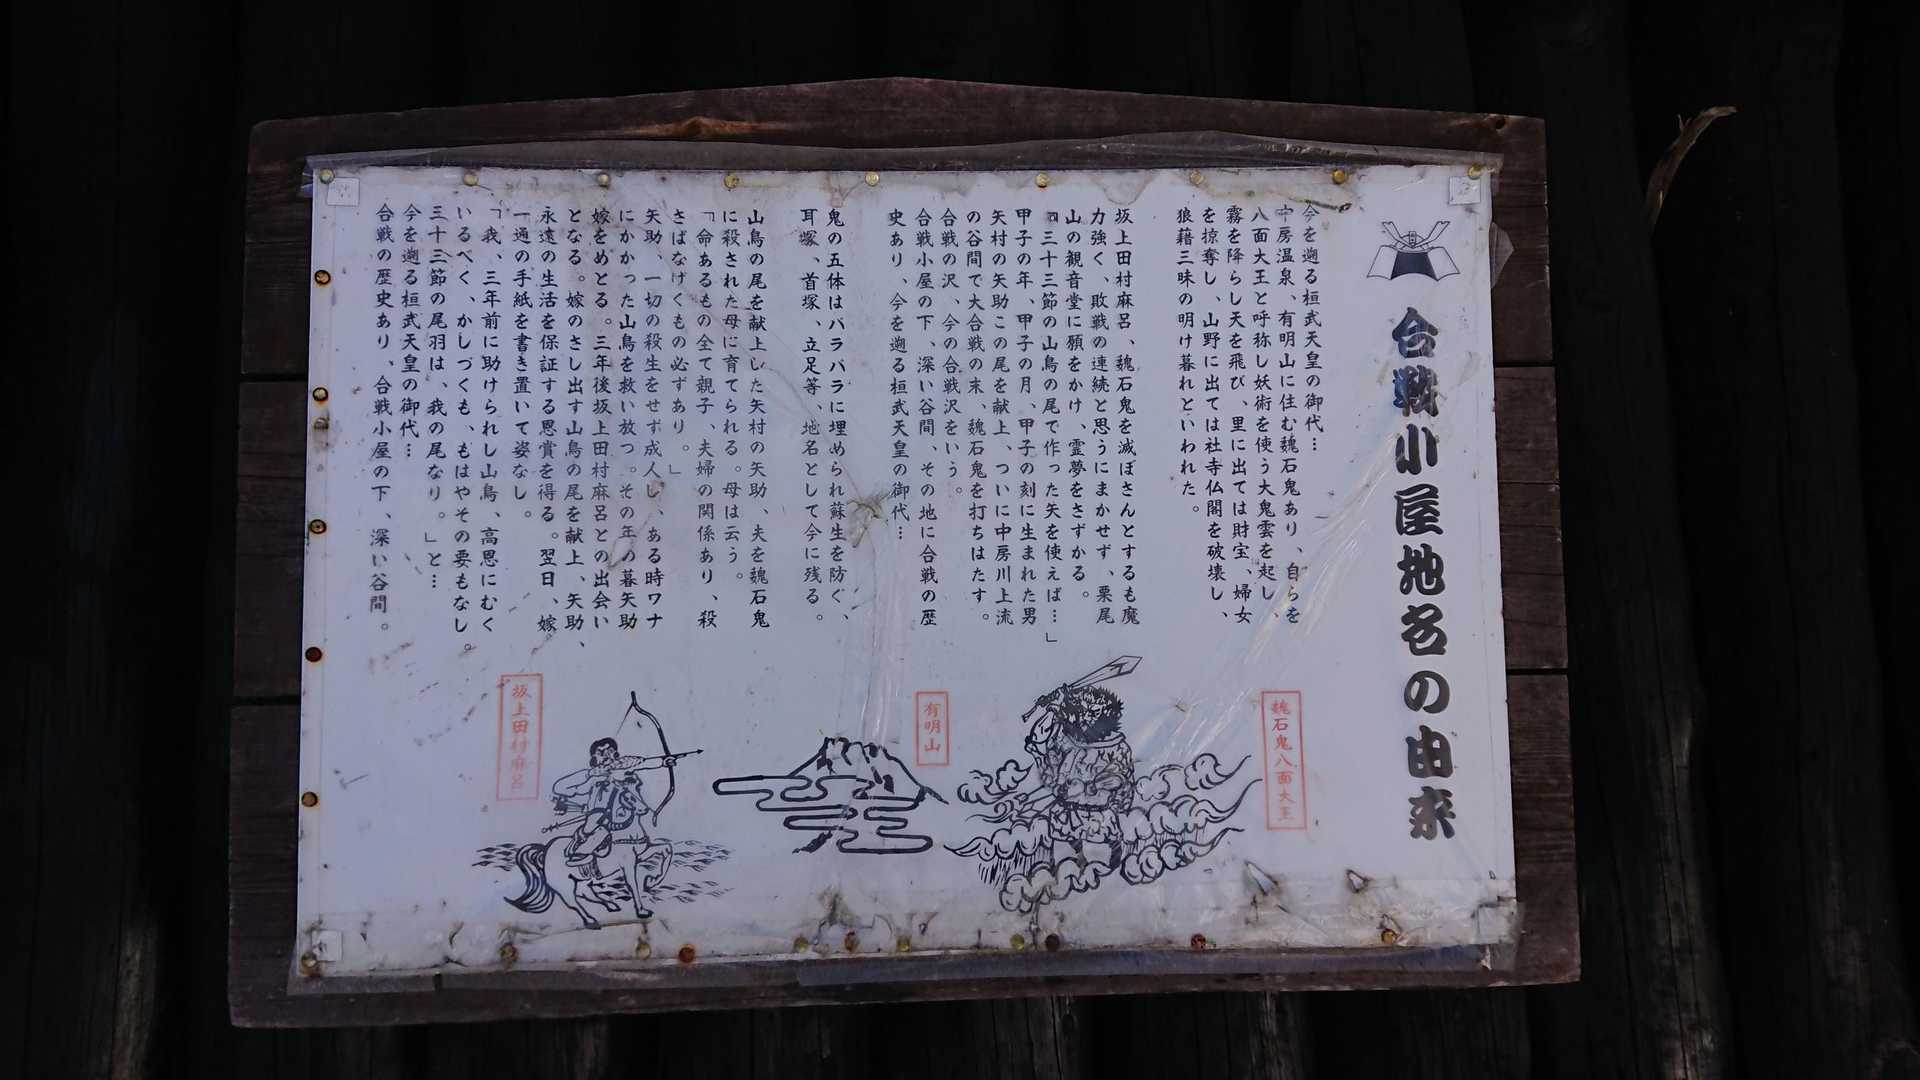 合戦小屋地名の由来
今を遡る桓武天皇の御代…
中房温泉、有明山に住む魏石鬼あり、自らを
八面大王と呼称し妖術を使う大鬼雲を起し、
霧を降らし天を飛び、里に出ては財宝、婦女
を掠奪し、山野に出ては社寺仏閣を破壊し、
狼藉三昧の明け暮れといわれた。
坂上田村麻呂、魏石鬼を滅ぼさんとするも魔
力強く、敗戦の連続と思うにまかせず、栗尾
山の観音堂に願をかけ、霊夢をさずかる。
「三十三節の山鳥の尾で作った矢を使えば…」
甲子の年、甲子の月、甲子の刻に生まれた男
矢村の矢助この尾を献上、ついに中房川上流
の谷間で大合戦の末、魏石鬼を打ちはたす。
合戦の沢、今の合戦沢をいう。
合戦小屋の下、深い谷間、その地に合戦の歴
史あり、今を遡る桓武天皇の御代…
鬼の五体はバラバラに埋められ蘇生を防ぐ、
耳塚、首塚、立足等、地名として今に残る。
山鳥の尾を献上した矢村の矢助、夫を魏石鬼
に殺された母に育てられる。母は云う。
「命あるもの全て親子、夫婦の関係あり、殺
さばなげくもの必ずあり。」
矢助、一切の殺生をせず成人し、ある時ワナ
にかかった山鳥を救い放つ。その年の暮矢助
嫁をめとる。三年後坂上田村麻呂との出会い
となる。嫁のさし出す山鳥の尾を献上、矢助、
永遠の生活を保証する恩賞を得る。翌日、嫁、
一通の手紙を書き置いて姿なし。
「我、三年前に助けられし山鳥、高恩にむく
いるべく、かしづくも、もはやその要もなし。
三十三節の尾羽は、我の尾なり。」と…
今を遡る桓武天皇の御代…
合戦の歴史あり、合戦小屋の下、深い谷間。
魏石鬼八面大王
有明山
坂上田村麻呂